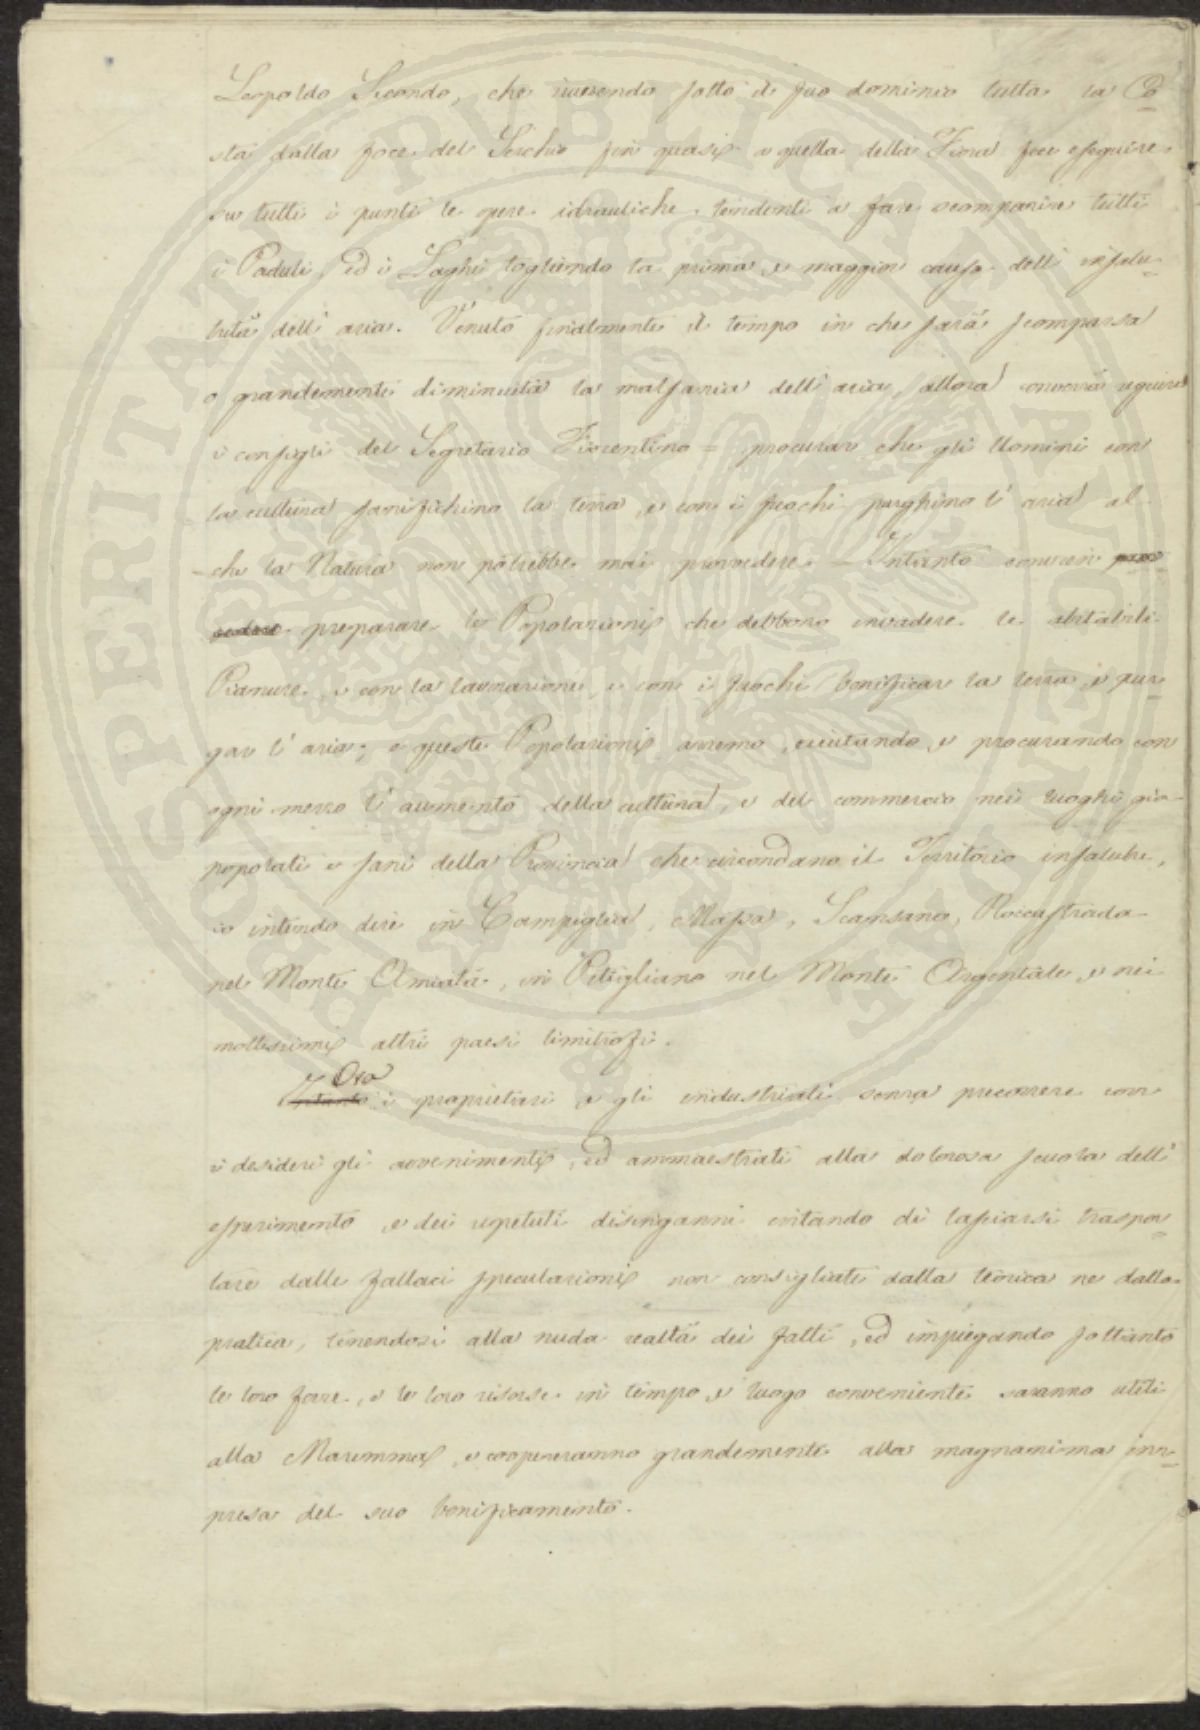 Leopoldo Secondo, che riunendo sotto il suo dominio tutta la Co
sta dalla foce del Serchio fin quasi a quella della Fiora fece eseguire
su tutti i punti le opere idrauliche tendenti a fare scomparire tutti
i Paduli, ed i Laghi togliendo la prima e maggior causa dell' insalu-
brità dell' aria. Venuto finalmente il tempo in che sarà scomparsa
o grandemente diminuita la malsania dell' aria, allora converrà seguire
i consigli del Segretario Fiorentino = procurar che gli Uomini con
la cultura sanifichino la terra, e con i fuochi purghino l' aria al
che la Natura non potrebbe mai provvedere. = Intanto convien
preparare le Popolazioni che debbono invadere le abitabili
Pianure e con la lavorazione, e con i fuochi bonificar la terra e pur
gar l' aria; e queste Popolazioni avremo, eccitando, e procurando con
ogni mezzo l' aumento della cultura, e del commercio nei luoghi già
popolati e sani della Provincia che circondano il Territorio insalubre,
io intendo dire in Campiglia, Massa, Scansano, Roccastrada
nel Monte Amiata, in Pitigliano nel Monte Argentale, e nei
moltissimi altri paesi limitrofi.
Ora
Intanto i proprietari e gli industriali senza precorrere con
i desideri gli avvenimenti, ed ammaestrati alla dolorosa scuola dell'
esperimento e dei ripetuti disinganni evitando di lasciarsi traspor
tare dalle fallaci speculazioni non consigliate dalla teorica ne dalla
pratica, tenendosi alla nuda realtà dei fatti, ed impiegando soltanto
le loro forze, e le loro risorse in tempo e luogo conveniente saranno utili
alla Maremma, e coopereranno grandemente alla magnanima im-
presa del suo bonificamento.
PROSPERITATI PUBLICAE AUGENDAE